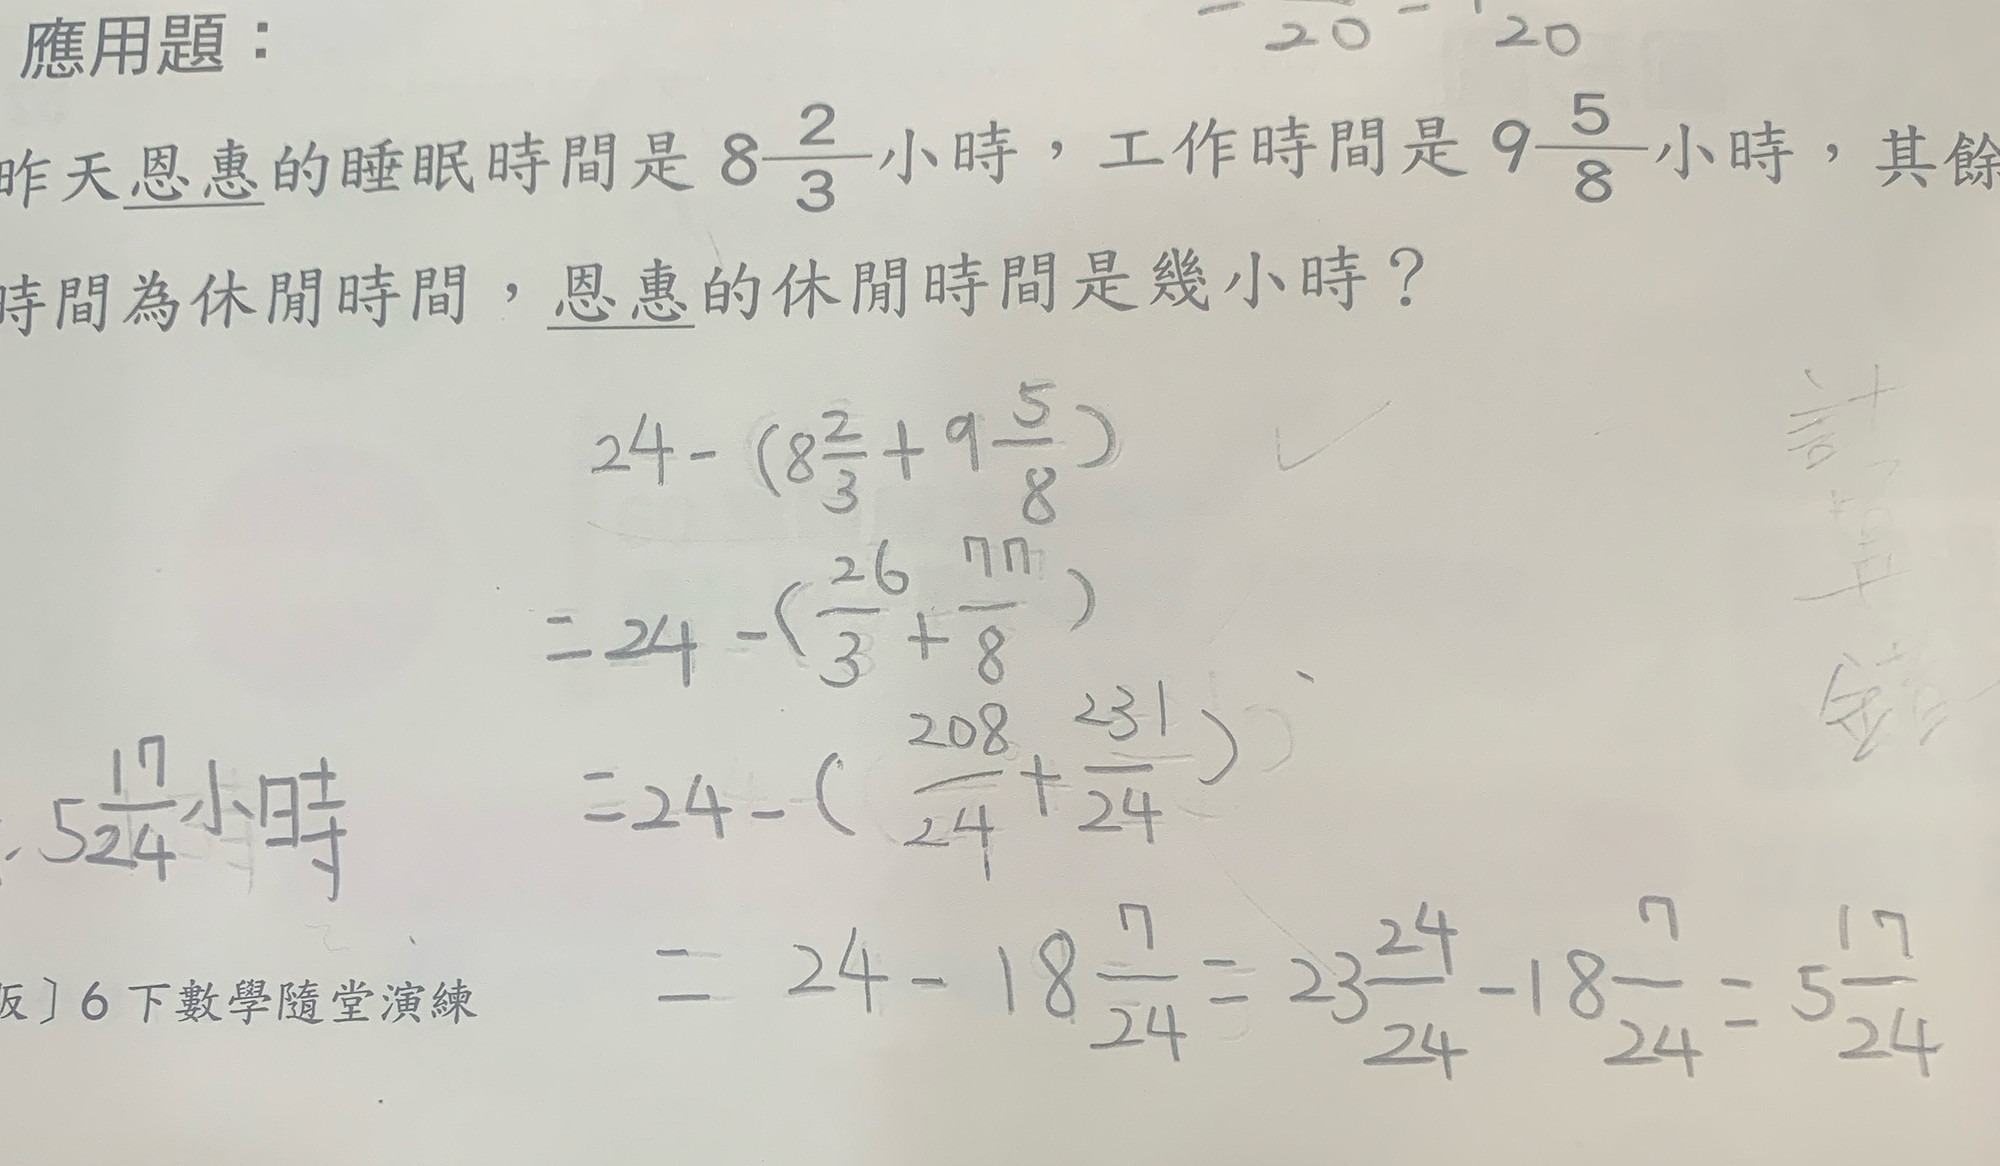 應用題：
昨天恩惠的睡眠時間是 8 2/3 小時，工作時間是 9 5/8 小時，其餘
時間為休閒時間，恩惠的休閒時間是幾小時？
24 - (8 2/3 + 9 5/8)
= 24 - (26/3 + 77/8)
= 24 - (208/24 + 231/24)
= 24 - 18 7/24 = 23 24/24 - 18 7/24 = 5 17/24
5 17/24 小時
版〕6 下數學隨堂演練
計算錯